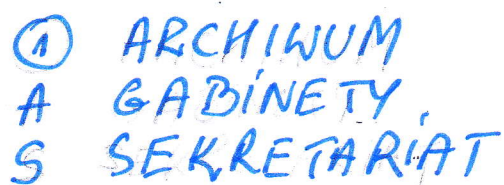 ① ARCHIWUM
A GABINETY
S SEKRETARIAT